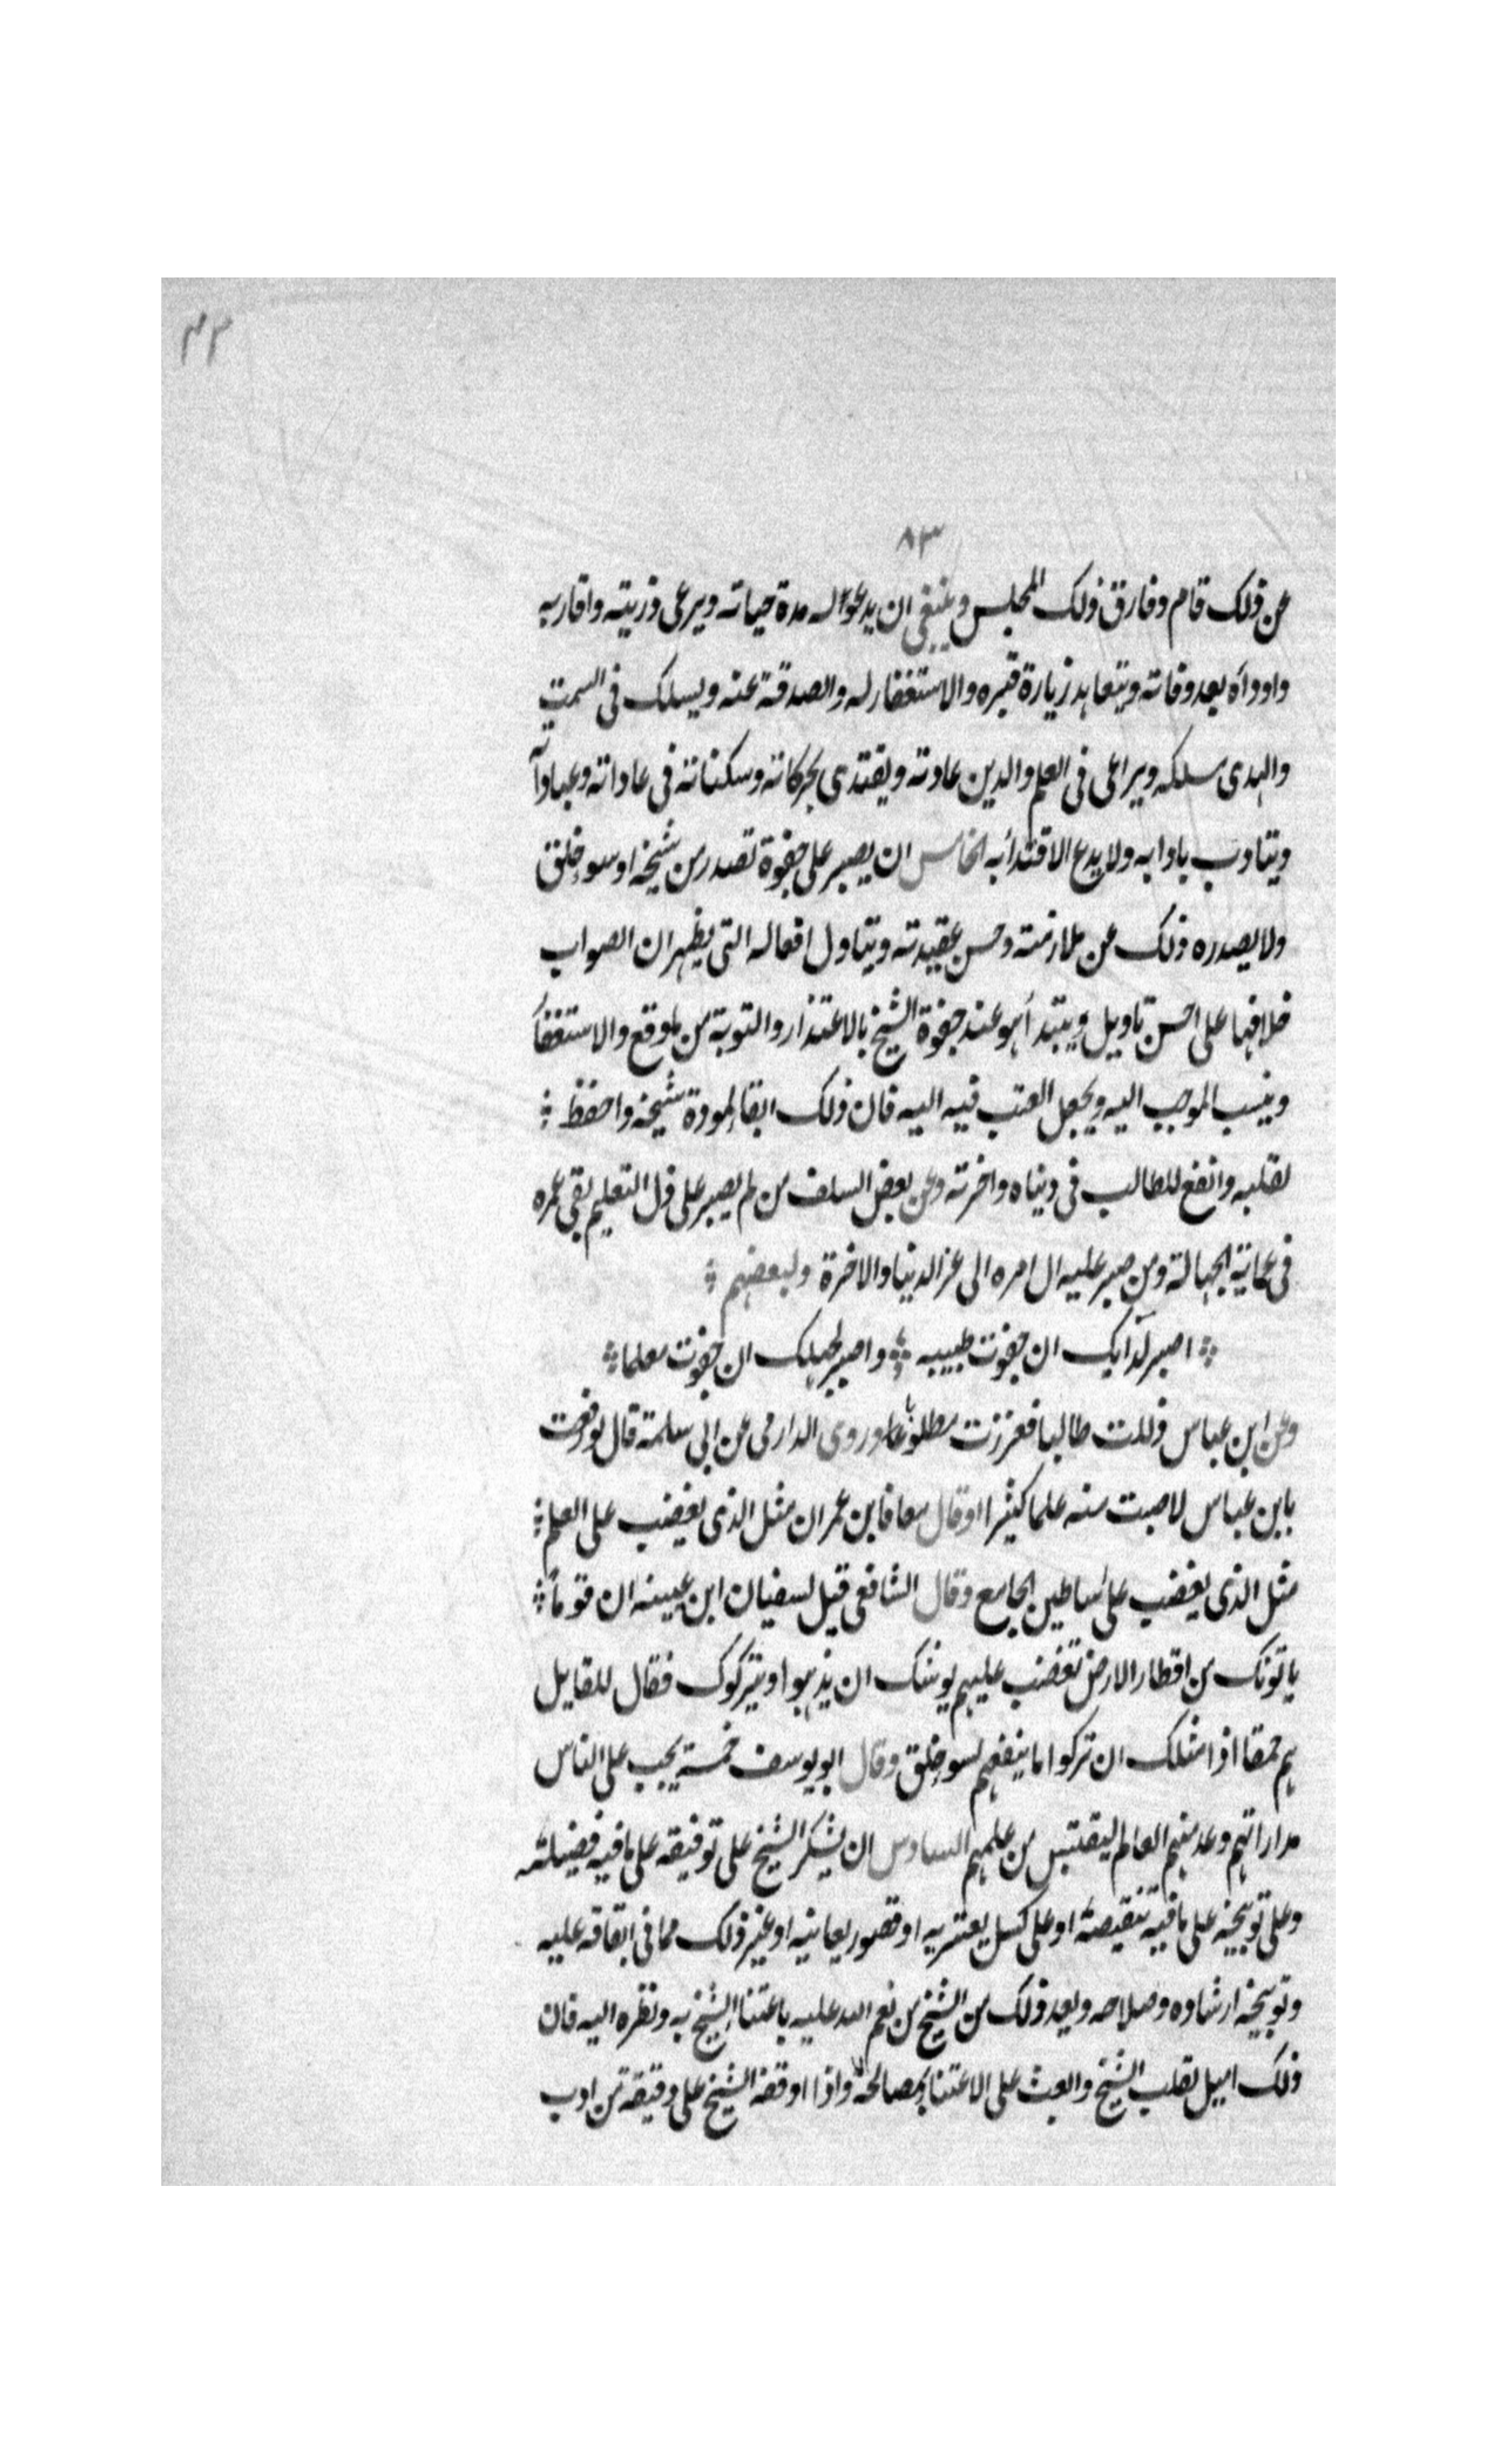 ٤٣
٨٣
عن ذلك قام وفارق ذلك المجلس وينبغى ان يدعوا له مدة حياته ويرعى ذريته واقاربه
واوداه بعد وفاته ويتعاهد زيارة قبره والاستغفار له والصدقة عنه ويسلك فى السمت
والهدى مسلكه ويراعى فى العلم والدين عادته ويقتدى بحركاته وسكناته فى عاداته وعباداته
ويتادب بادابه ولا يدع الاقتداء به الخامس ان يصبر على جفوة تصدر من شيخه او سوء خلق
ولا يصدره ذلك عن ملازمته وحسن عقيدته ويتاول افعاله التى يظهر ان الصواب
خلافها على احسن تاويل ويبتدأ هو عند جفوة الشيخ بالاعتذار والتوبة من ما وقع والاستغفار
وينسب الموجب اليه ويجعل العتب فيه اليه فان ذلك ابقاء لمودة شيخه واحفظ
لقلبه وانفع للطالب فى دنياه واخرته وعن بعض السلف من لم يصبر على ذل التعليم بقى عمره
فى عماية الجهالة ومن صبر عليه ال امره الى عز الدنيا والاخرة ولبعضهم
اصبر لدآيك ان جفوت طبيبه واصبر لجهلك ان جفوت معلما
وعن ابن عباس ذللت طالبا فعززت مطلوبا وروى الدارمى عن ابى سلمة قال لو رفقت
بابن عباس لاصبت منه علما كثيرا وقال معافا بن عمران مثل الذى يغضب على العلم
مثل الذى يغضب على اساطين الجامع وقال الشافعى قيل لسفيان ابن عيينه ان قوماً
ياتونك من اقطار الارض تغضب عليهم يوشك ان يذهبوا ويتركوك فقال للقايل
هم حمقا اذا مثلك ان تركوا ما ينفعهم لسوء خلق وقال ابو يوسف خمسة يجب على الناس
مداراتهم وعد منهم العالم ليقتبس من علمهم السادس ان يشكر الشيخ على توفيقه على ما فيه فضيلته
وعلى توبيخه على ما فيه تنقيصه او على كسل يعتريه او قصور يعانيه او غير ذلك مما فى ايقافه عليه
وتوبيخه ارشاده وصلاحه ويعد ذلك من الشيخ من نعم الله عليه باعتناء الشيخ به ونظره اليه فان
ذلك اميل لقلب الشيخ وابعث على الاعتناء بمصالحه واذا اوقفه الشيخ على دقيقة من ادب